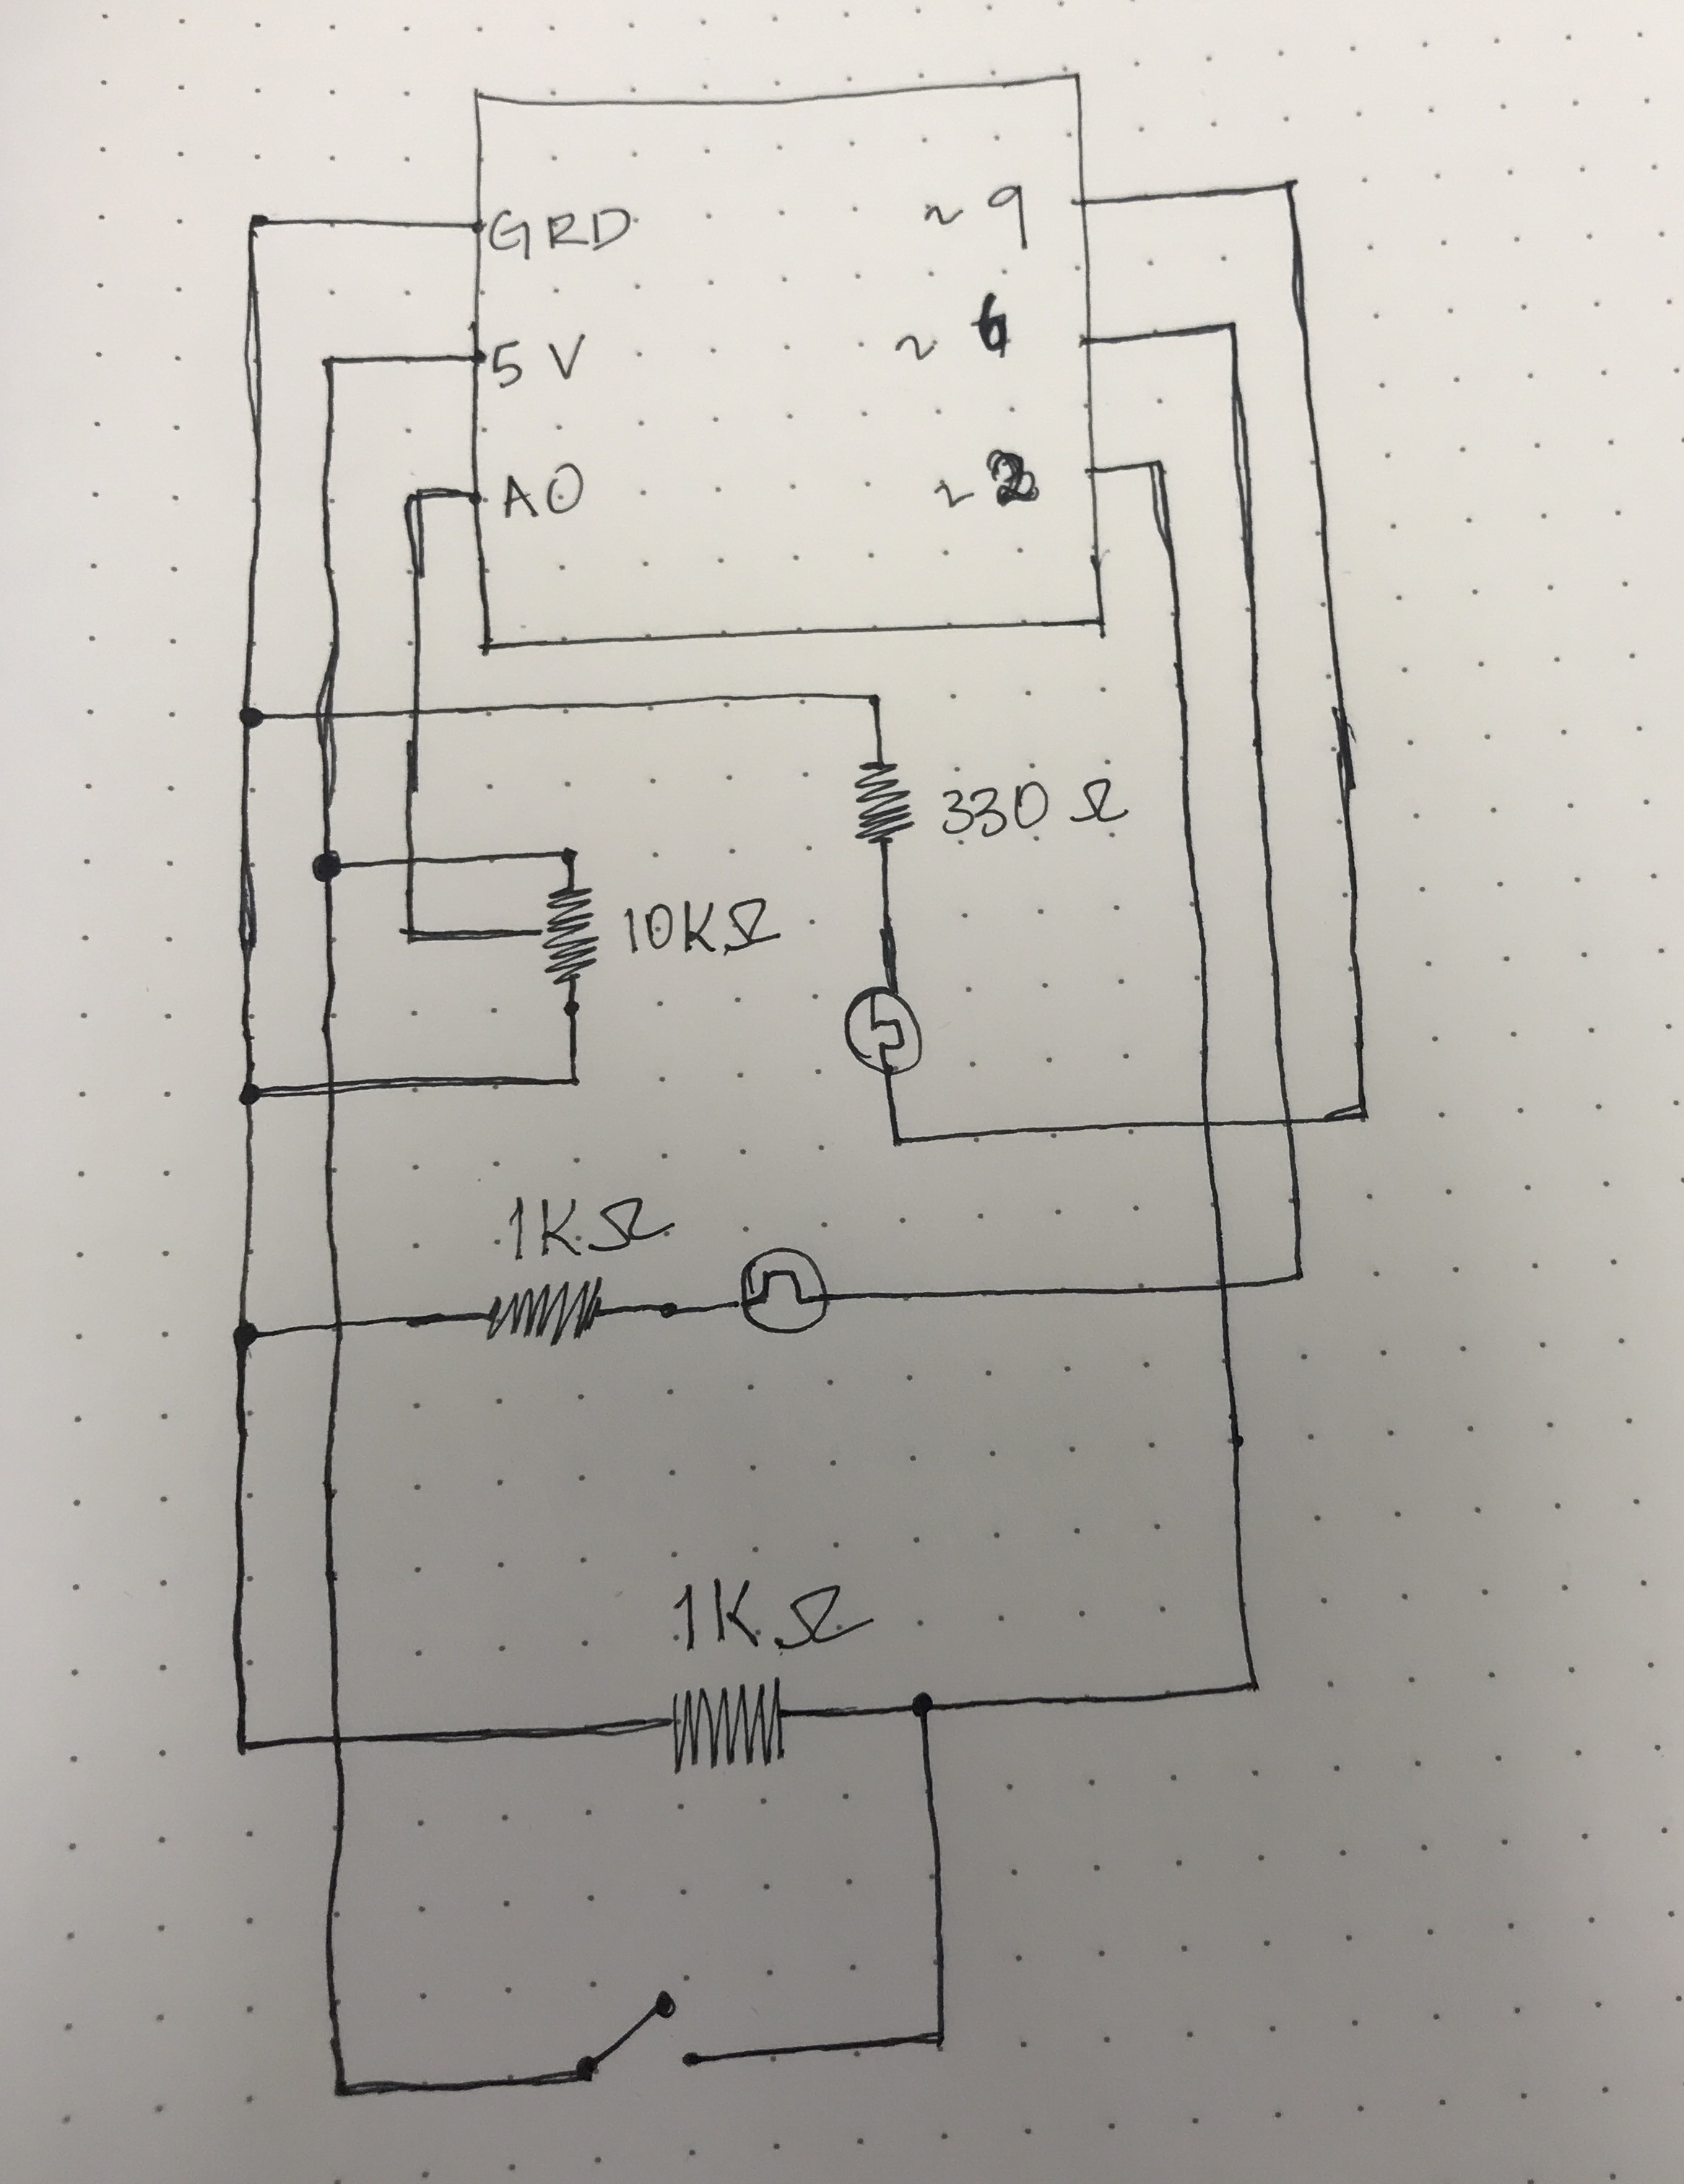 GRD
~ 9
5 V
~ 6
A0
~ 2
330 Ω
10KΩ
1KΩ
1KΩ